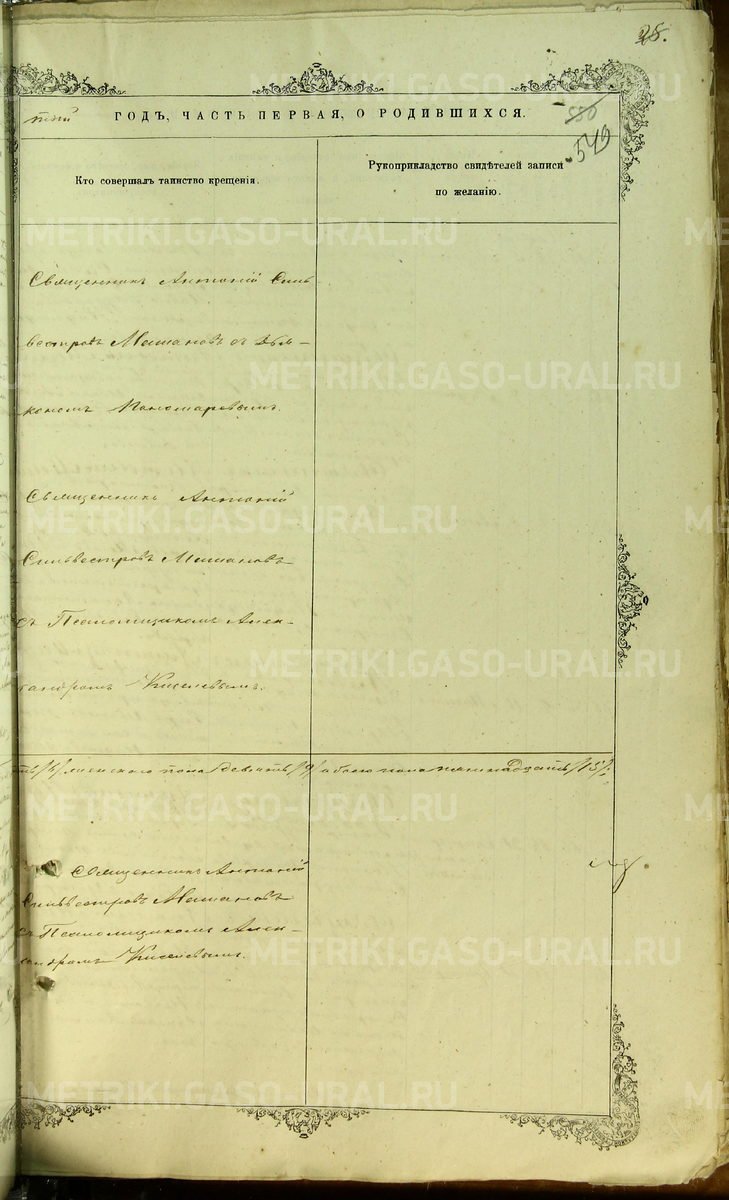 28.
ГОДЪ, ЧАСТЬ ПЕРВАЯ, О РОДИВШИХСЯ.
550
549
Кто совершалъ таинство крещенія.
Рукоприкладство свидѣтелей записи
по желанію.
METRIKI.GASO-URAL.RU
Священникъ Антоній Силь-
вестровъ Машановъ съ Дья-
кономъ Пономаревымъ.
Священникъ Антоній
Сильвестровъ Машановъ
съ Псаломщикомъ Алек-
сандромъ Киселевымъ.
/6/ женскаго пола девять /9/ обоего пола пятнадцать /15/
Священникъ Антоній
Сильвестровъ Машановъ
съ Псаломщикомъ Алек-
сандромъ Киселевымъ.